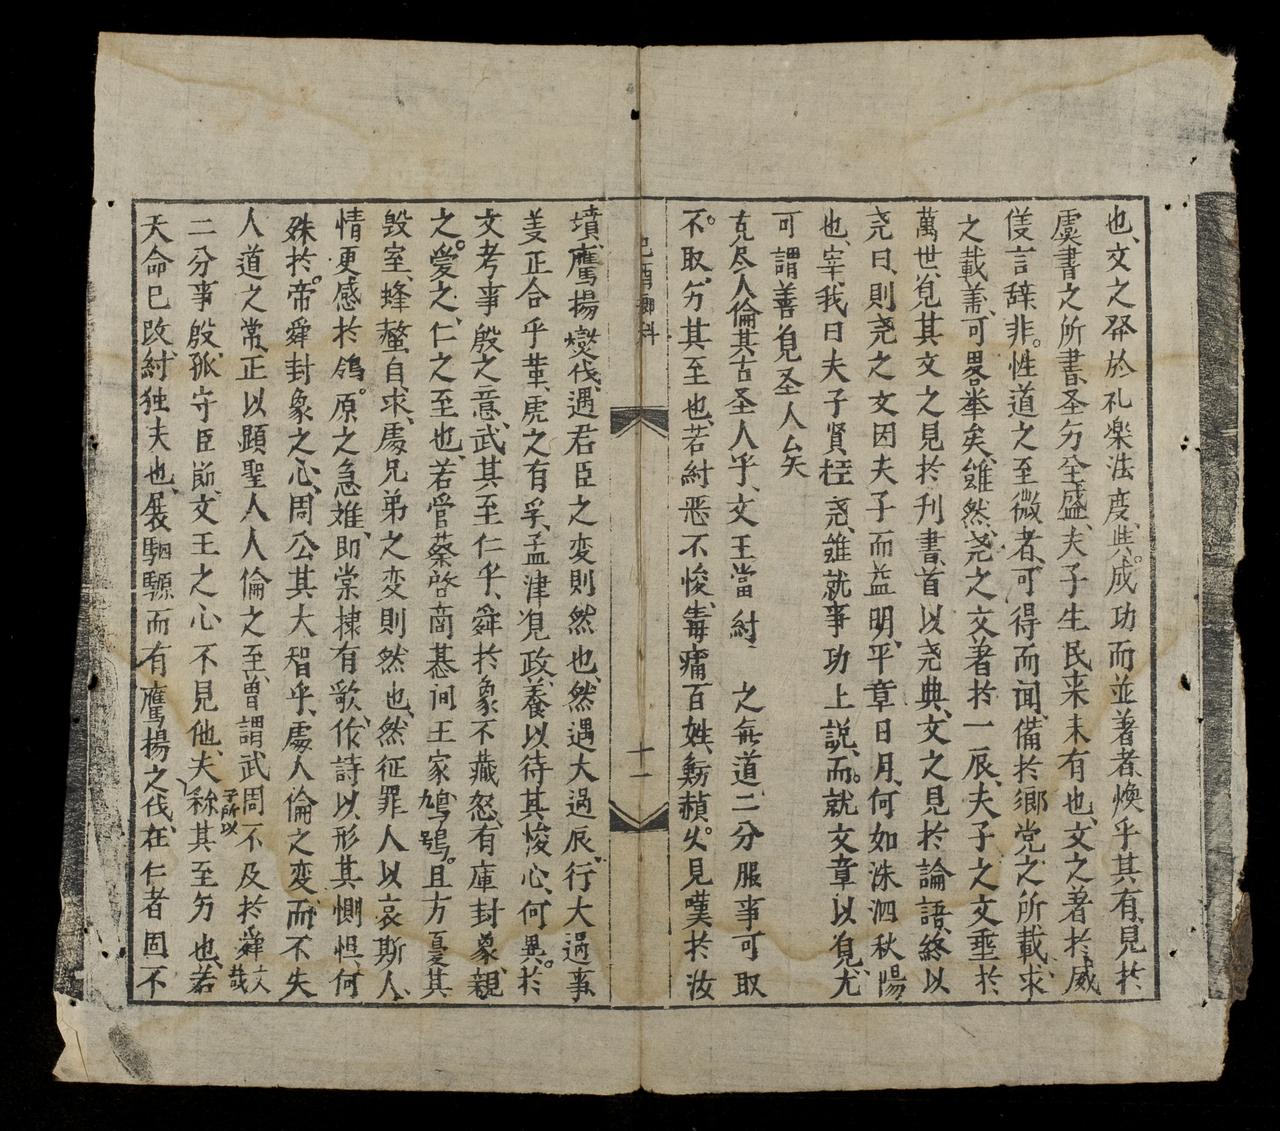 也、文之卒於礼楽法度、典。成功而並著者、煥乎其有、見於
虞書之所書、圣勻全盛、夫子生民来未有也、文之著於威
仪言辞非。性道之至微者、可得而闻、備於鄉党之所載、求
之載羑、可畧举矣、雖然、尭之文著於一辰、夫子之文垂於
萬世、覓其文之見於刊書、首以尭典、文之見於論語、終以
尭曰、則尭之文因夫子而益明、平章日月、何如洙泗秋陽
也、宰我曰夫子賢於尭、雖就事功上説、而。就文章以覓、尤
可謂善覓圣人厶矣
克尽人倫其古圣人乎、文王當紂 之無道、二分服事可取
不。取、勻其至也、若紂恶不悛、毒痡百姓、魴赬久。見嘆於汝
巳酉鄉科
十一
墳、鷹揚燮伐、遇君臣之变則然也、然遇大過辰、行大過事、
羑正合乎葷、虎之有孚、孟津覓政、養以待其悛心、何異。於
文考事殷之意、武其至仁乎、舜於象不藏怒、有庫封象、親
之。愛之、仁之至也、若管蔡啓商惎间王家、鳩鴞。且方憂其
毁室、蜂螫自求、處兄弟之变則然也、然征罪人以哀斯人、
情更感於鴒。原之急难、即棠棣有歌、作詩以形其惻怛、何
殊於。帝舜封象之心、周公其大智乎、處人倫之变、而不失
人道之常、正以顕聖人人倫之至、曽謂武周不及於舜文哉
二分事殷、孤守臣節、文王之心不見他、夫子所以称其至勻也、若
天命已改、紂独夫也、展駟騵而有鷹揚之伐、在仁者固不